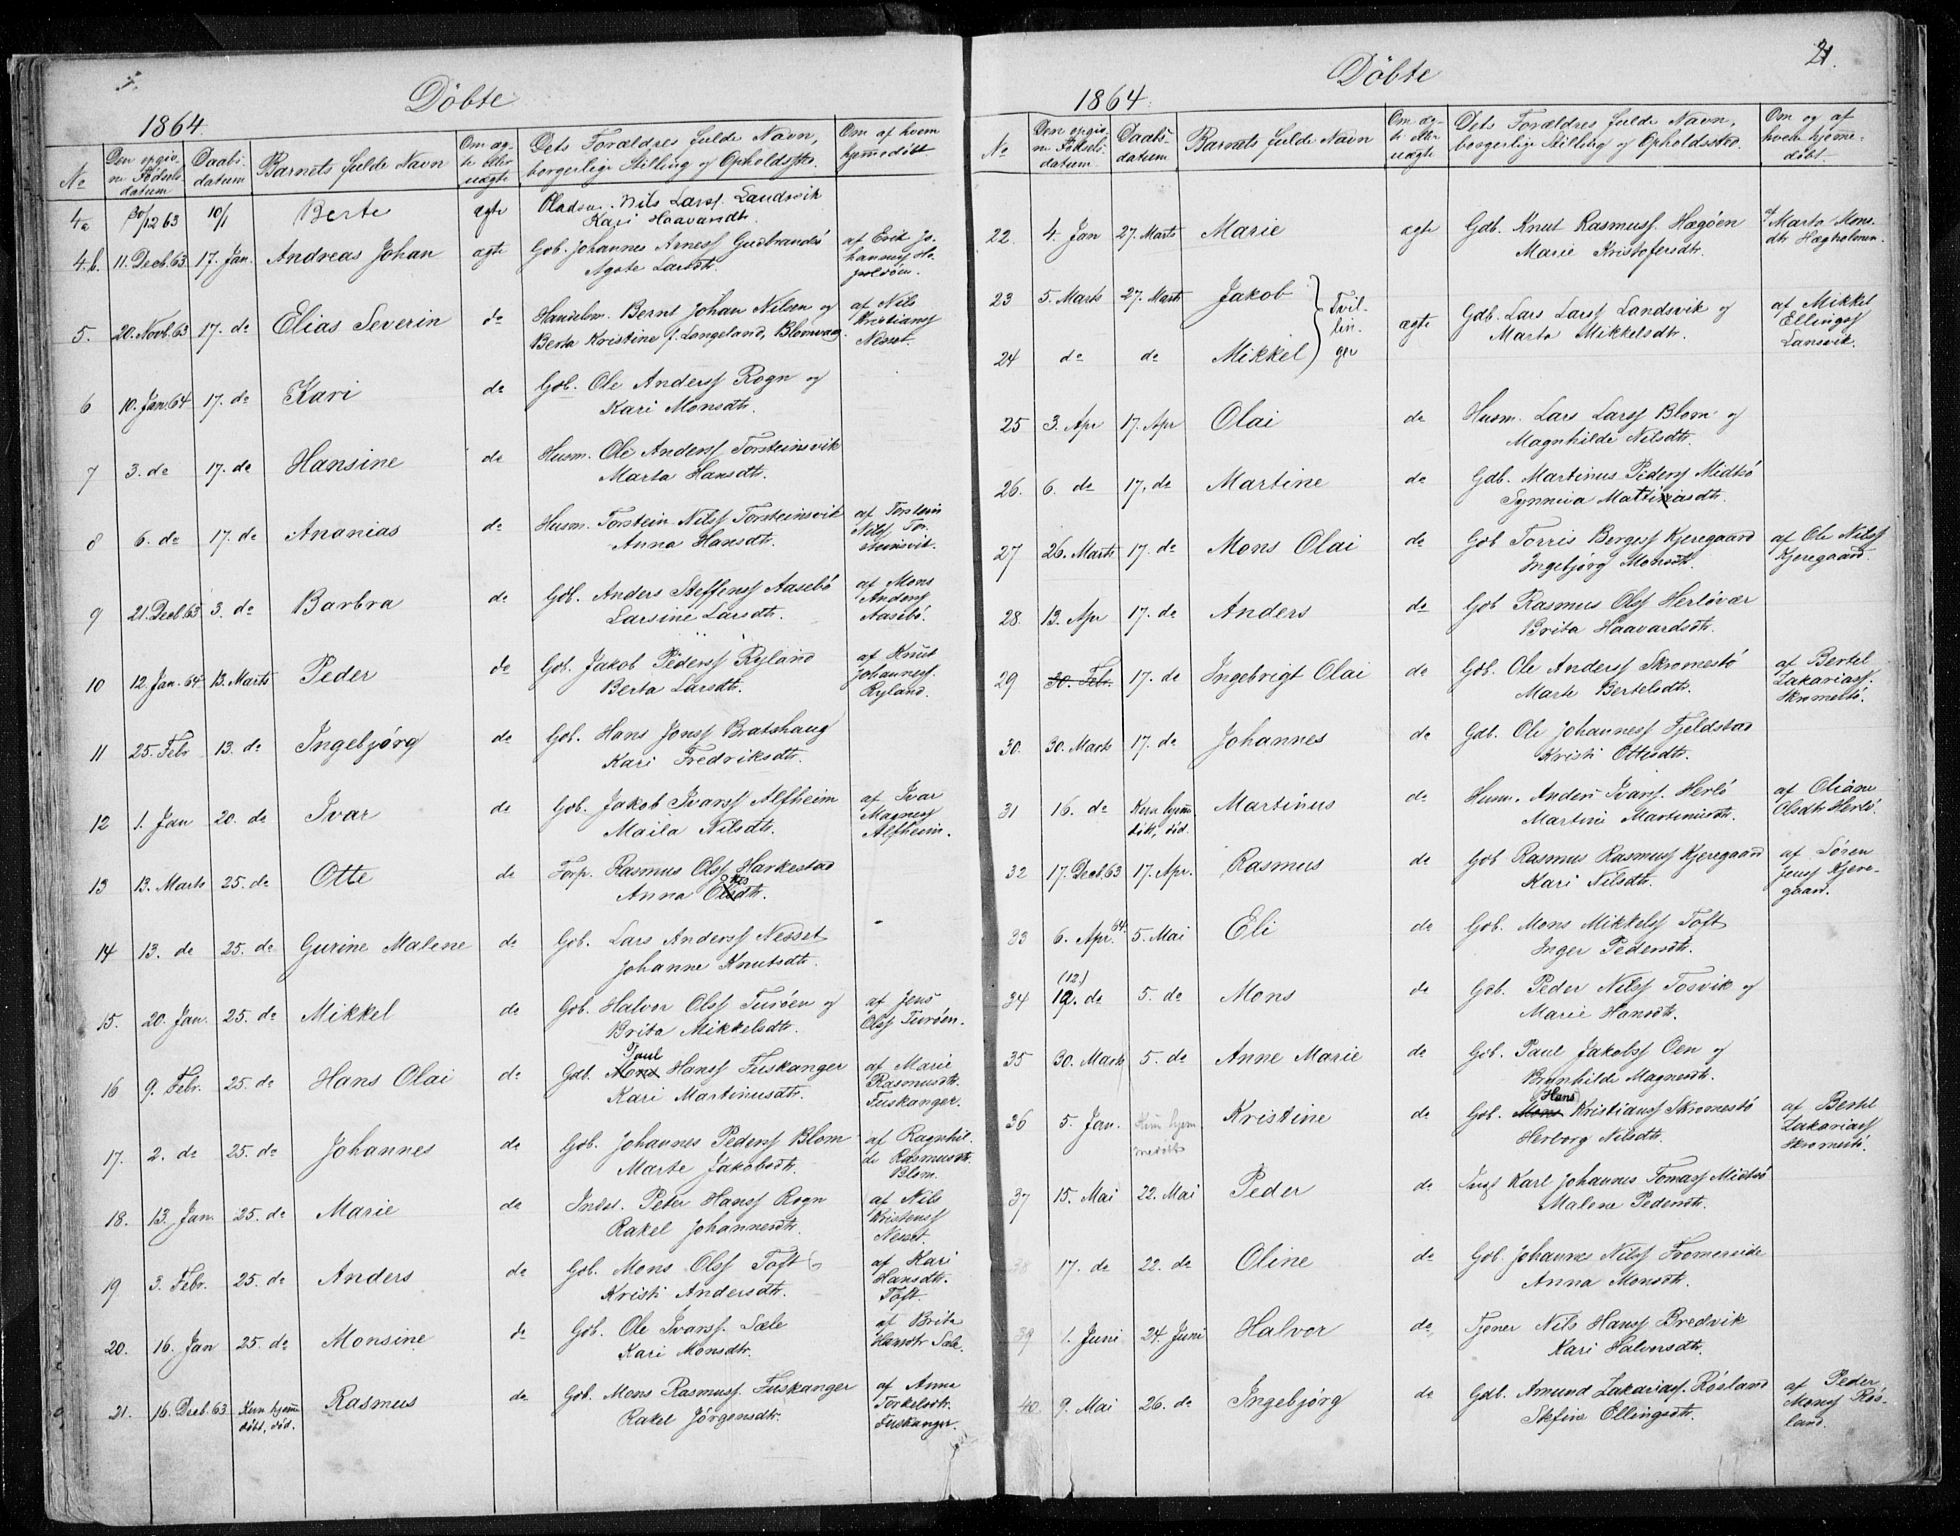 Döbte
1864
No | Den opgivne Fødselsdatum | Daabsdatum | Barnets fulde Navn | Om ægte eller uægte | Dets Forældres fulde Navn, borgerlige Stilling og Opholdssted | Om af hvem hjemmedøbt
4a | 30/12 63 | 10/1 | Berte | ægte | Nils Larss Landsvik
Kari Haavardt
4.b. | 11. Decb. 63 | 17. Jan. | Andreas Johan | ægte | Gdb. Johannes Arness Gudbrandsö | af Erik Jo-
Agate Larsdtr. | hanness
5. | 20. Novb. 63 | 17. do | Elias Severin | do | Handelsm. Bernt Johan Nilsen og | af Nils
Berta Kristine f. Langeland, Blomvaag. | Kristianss
Nesset.
6 | 10. Jan. 64 | 17. do | Kari | do | Gdb. Ole Anderss Rogn og
Kari Monsdtr.
7 | 3. do | 17. do | Hansine | do | Husm. Ole Anderss Torsteinsvik
Marta Hansdtr.
8 | 6. do | 17. do | Ananias | do | Husm. Torstein Nilss Torsteinsvik | af Torstein
Anna Hansdtr. | Nilss Tor-
steinsvik.
9 | 21. Decb. 63 | 3. do | Barbra | do | Gdb. Anders Steffenss Aasebö | af Mons
Larsine Larsdtr. | Anderss
Aasebö.
10 | 12. Jan. 64 | 13. Marts | Peder | do | Gdb. Jakob Pederss Ryland | af Knut
Berta Larsdtr. | Johanness.
Ryland.
11 | 25. Febr | 13. do | Ingebjørg | do | Gdb. Hans Jonss Bratshaug
Kari Fredriksdtr.
12 | 1. Jan | 20. do | Ivar | do | Gdb. Jakob Ivarss Alfheim | af Ivar
Maila Nilsdtr. | Magness
Alfheim.
13 | 13. Marts | 25. do | Otte | do | Forp. Rasmus Olss Harkestad
Anna Olsdtr.
14 | 13. do | 25. do | Gurine Malene | do | Gdb. Lars Anderss Nesset
Johanne Knutsdtr.
15. | 20. Jan. | 25. do | Mikkel | do | Gdb. Halvor Olss Turöen og | af Jens
Brita Mikkelsdtr. | Olss Turöen.
Paul
16 | 9. Febr. | 25. do | Hans Olai | do | Gdb. Mons Hanss Fuskanger | af Marie
Kari Martinusdtr. | Rasmusdtr.
Fuskanger.
17. | 2. do | 25. do | Johannes | do | Gdb. Johannes Pederss Blom | af Ragnhil-
Marte Jakobsdtr. | de Rasmusdtr.
Blom.
18. | 13. Jan | 25. do | Marie | do | Inds. Peter Hanss Rogn | af Nils
Rakel Johannesdtr. | Kristenss
Nesset.
19 | 3. Febr. | 25. do | Anders | do | Gdb. Mons Olss Toft | af Kari
Kristi Andersdtr. | Hansdtr.
Toft.
20. | 16. Jan | 25. do | Monsine | do | Gdb. Ole Ivarss. Sæle | af Brita
Kari Monsdtr. | Hansdtr Sæle.
21. | 16. Decb. 63 | Kun hjem̄ | Rasmus | do | Gdb. Mons Rasmuss. Fuskanger | af Anna
døbt, død. | Rakel Jörgensdtr. | Torkelsdtr.
Fuskanger.
21.
Döbte
1864.
No | Den opgivne Fødselsdatum. | Daabsdatum | Barnets fulde Navn | Om ægte eller uægte | Dets Forældres fulde Navn, borgerlige Stilling og Opholdssted. | Om og af hvem hjemmedøbt.
22. | 4. Jan | 27. Marts | Marie | ægte | Gdb. Knut Rasmuss. Hægöen | af Marta Mons-
Marie Kristofersdtr. | dtr Hægholmen.
23 | 5. Marts | 27. Marts | Jakob | Tvil-
lin-
ger | ægte | Gdb. Lars Larss Landsvik og | af Mikkel
Marta Mikkelsdtr. | Ellingss
Lansvik.
24 | do | do | Mikkel
25 | 3. Apr | 17. Apr | Olai | do | Husm. Lars Larss Blom og
Magnhilde Nilsdtr.
26. | 6. do | 17. do | Martine | do | Gdb. Martinus Pederss Midtö
Synneva Matiasdtr.
27 | 26. Marts | 17. do | Mons Olai | do | Gdb Torris Bergess Kjeregaard | af Ole Nilss
Ingebjørg Monsdtr. | Kjeregaard.
28. | 13. Apr | 17. do | Anders | do | Gdb Rasmus Olss Herlövær
Brita Haavardsdtr.
29 | 30. Febr. | 17. do | Ingebrigt Olai | do | Gdb. Ole Anderss Skromestö | af Bertel
Marte Bertelsdtr. | Zakariass.
Skromestö.
30. | 30. Marts | 17. do | Johannes | do | Gdb. Ole Johanness Fjeldstad
Kristi Ottesdtr.
31 | 16. do | Kun hjem̄ | Martinus | do | Husm. Anders Ivarss. Herlö | af Oliane
döbt, död. | Martine Martinusdtr. | Olsdtr Herlö.
32 | 17. Decb. 63 | 17. Apr. | Rasmus | do | Gdb Rasmus Rasmuss Kjeregaard | af Sören
Kari Nilsdtr. | Jenss Kjere-
gaard.
33 | 6. Apr. 64 | 5. Mai | Eli | do | Gdb. Mons Mikkelss Toft
Inger Pedersdtr.
(12.)
34 | 12. do | 5. do | Mons | do | Gdb. Peder Nilss Tosvik og
Marie Hansdtr.
35 | 30. Marts | 5. do | Anne Marie | do | Gdb. Paul Jakobss Oen og
Brynhilde Magnesdtr.
Hans
36 | 5. Jan. | Kun hjem | Kristine | do | Gdb. Mons Kristianss Skromestö | af Bertel
medöbt | Herborg Nilsdtr. | Zakariass
Skromestö.
37 | 15. Mai | 22. Mai | Peder | do | Karl Johannes Tomass Midtö
Malene Pedersdtr.
38 | 17. do | 22. do | Oline | do | Gdb. Johannes Nilss Fromereide
Anna Monsdtr.
39 | 1. Juni | 24. Juni | Halvor | do | Tjener Nils Hanss Bredvik
Kari Halvorsdtr.
40. | 9. Mai | 26. do | Ingebjörg | do | Gdb. Amund Zakariass. Rösland | af Peder
Stefine Ellingsdtr. | Monss Rös-
land.